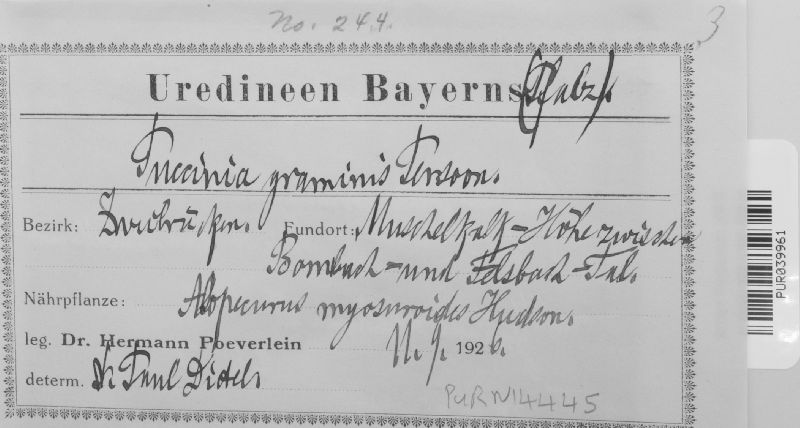 No. 244.
3
Uredineen Bayerns (Pfalz).
Puccinia graminis Persoon.
Bezirk: Zweibrücken. Fundort: Muschelkalk-Höhe zwischen
Bombach- und Felsbach-Tal.
Nährpflanze: Alopecurus myosuroides Hudson.
leg. Dr. Hermann Poeverlein 11. 9. 1926.
determ. Dr Paul Dietel.
PUR N14445
PUR039961